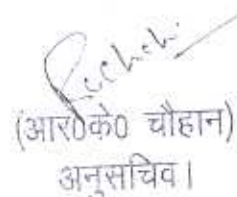 (आर0के0 चौहान)
अनुसचिव।